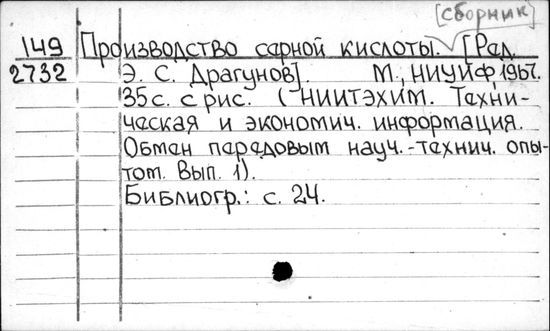 [сборник]
149 Производство серной кислоты. [Ред.
2732 Э. С. Драгунов]. М., НИУИФ, 1967.
35 с. с рис. (НИИТЭХИМ. Техни-
ческая и экономич. информация.
Обмен передовым науч.-технич. опы-
том. Вып. 1).
Библиогр.: с. 24.